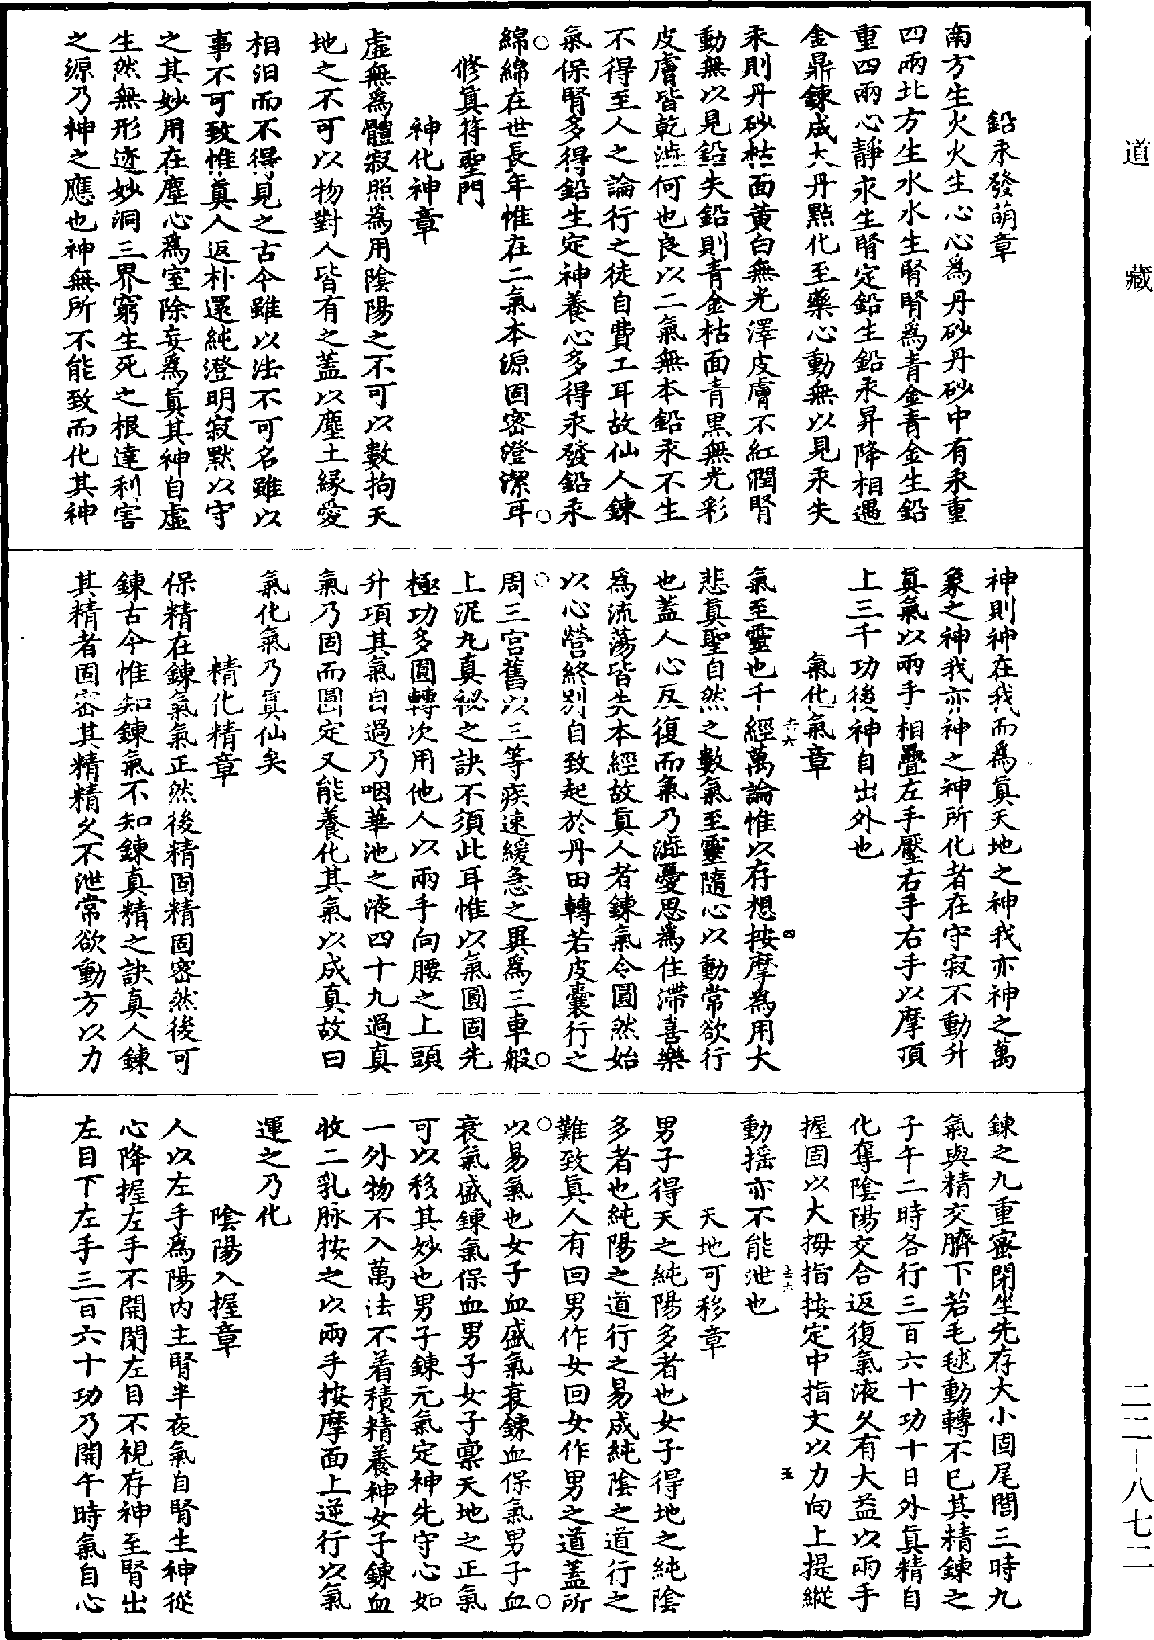 道藏
鉛汞發萌章
南方生火火生心心為丹砂丹砂中有汞重
四兩北方生水水生腎腎為青金青金生鉛
重四兩心靜汞生腎定鉛生鉛汞昇降相遇
金鼎鍊成大丹點化至藥心動無以見汞失
汞則丹砂枯面黃白無光澤皮膚不紅潤腎
動無以見鉛失鉛則青金枯面青黑無光彩
皮膚皆乾澁何也良以二氣無本鉛汞不生
不得至人之論行之徒自費工耳故仙人鍊
氣保腎多得鉛生定神養心多得汞發鉛汞
綿綿在世長年惟在二氣本源固密澄潔耳
修真符聖門
神化神章
虛無為體寂照為用陰陽之不可以數拘天
地之不可以物對人皆有之蓋以塵土緣愛
相汩而不得見之古今雖以法不可名雖以
事不可致惟真人返朴還純澄明寂默以守
之其妙用在塵心為室除妄為真其神自虛
生然無形迹妙洞三界窮生死之根達利害
之源乃神之應也神無所不能致而化其神
神則神在我而為真天地之神我亦神之萬
象之神我亦神之神所化者在守寂不動升
真氣以兩手相疊左手壓右手右手以摩頂
上三千功後神自出外也
氣化氣章
氣至靈也千經萬論惟以存想按摩為用大
悲真聖自然之數氣至靈隨心以動常欲行
也蓋人心反復而氣乃澁憂思為住滯喜樂
為流蕩皆失本經故真人者鍊氣令圓然始
以心營終别自致起於丹田轉若皮囊行之
周三宮舊以三等疾速緩急之異為三車般
上泥丸真秘之訣不須此耳惟以氣圓固先
極功多圓轉次用他人以兩手向腰之上頭
升項其氣自過乃咽華池之液四十九過真
氣乃固而圓定又能養化其氣以成真故曰
氣化氣乃真仙矣
精化精章
保精在鍊氣氣正然後精固精固密然後可
鍊古今惟知鍊氣不知鍊真精之訣真人鍊
其精者固密其精精久不泄常欲動方以力
鍊之九重密閉坐先存大小固尾閭三時九
氣與精交臍下若毛毬動轉不已其精鍊之
子午二時各行三百六十功十日外真精自
化奪陰陽交合返復氣液久有大益以兩手
握固以大拇指按定中指文以力向上提縱
動揺亦不能泄也
天地可移章
男子得天之純陽多者也女子得地之純陰
多者也純陽之道行之易成純陰之道行之
難致真人有回男作女回女作男之道蓋所
以易氣也女子血盛氣衰鍊血保氣男子血
衰氣盛鍊氣保血男子女子禀天地之正氣
可以移其妙也男子鍊元氣定神先守心如
一外物不入萬法不着積精養神女子鍊血
收二乳脉按之以兩手按摩面上逆行以氣
運之乃化
陰陽入握章
人以左手為陽内主腎半夜氣自腎生神從
心降握左手不開閉左目不視存神至腎出
左目下左手三百六十功乃開午時氣自心
二二—八七二